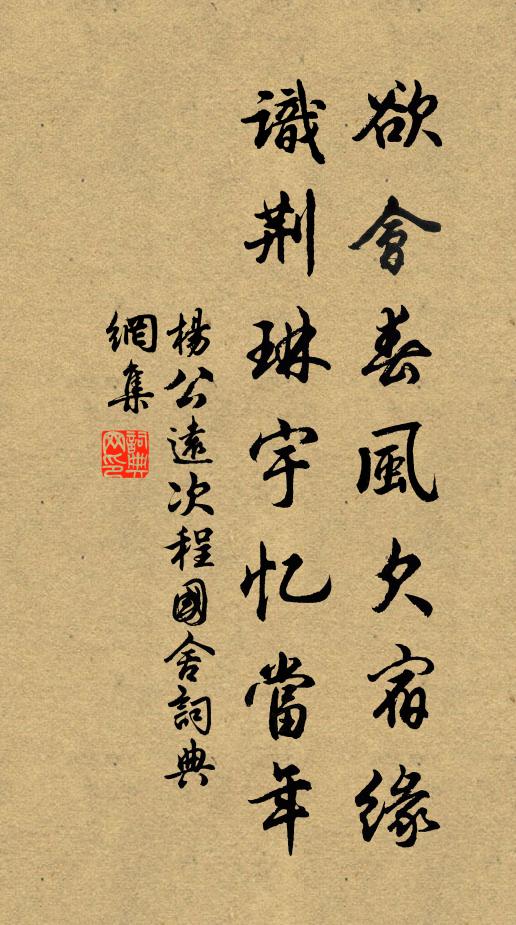 欲會春風欠宿緣
識荆琳宇忆當年
楊公遠次程國舍詞典
網集
詞典
网印